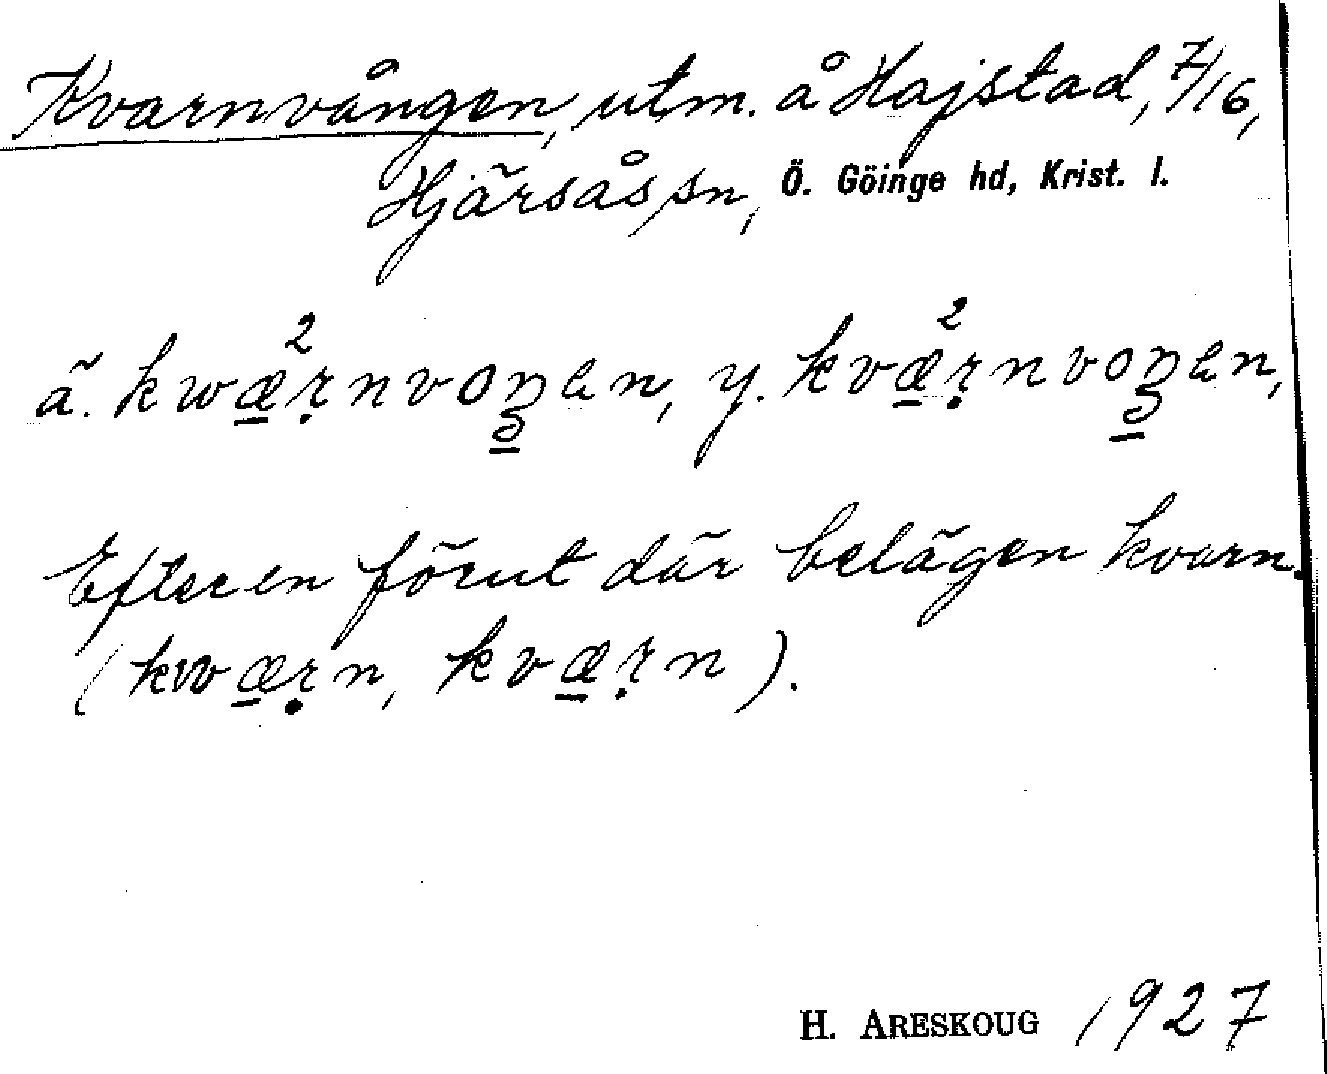 Kvarnvången, utm. å Hajstad, 7/16,
Hjärsås sn, Ö. Göinge hd, Krist. l.
ä. kwæ̠²ṛnvoŋ̠ən, y. kvæ̠²ṛnvoŋ̠ən,
Efter en förut där belägen kvarn.
(kwæ̠ṛn, kvæ̠ṛn).
H. ARESKOUG 1927